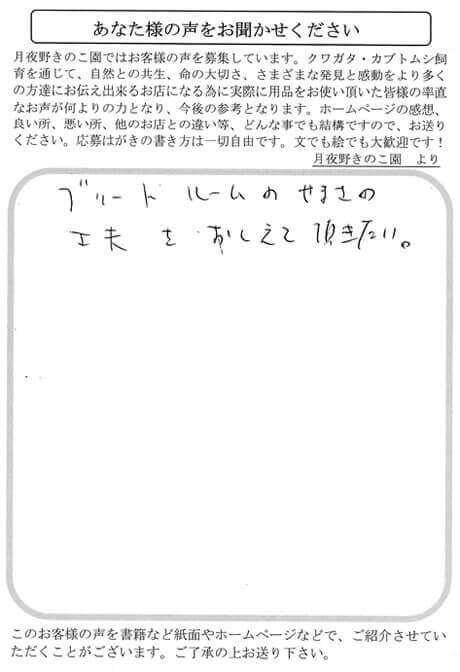 あなた様の声をお聞かせください
月夜野きのこ園ではお客様の声を募集しています。クワガタ・カブトムシ飼
育を通じて、自然との共生、命の大切さ、さまざまな発見と感動をより多く
の方達にお伝え出来るお店になる為に実際に用品をお使い頂いた皆様の率直
なお声が何よりの力となり、今後の参考となります。ホームページの感想、
良い所、悪い所、他のお店との違い等、どんな事でも結構ですので、お送り
ください。応募はがきの書き方は一切自由です。文でも絵でも大歓迎です！
月夜野きのこ園　より
ブリード ルームの やすさの
工夫 を おしえて 頂きたい。
このお客様の声を書籍など紙面やホームページなどで、ご紹介させてい
ただくことがございます。ご了承の上お送り下さい。